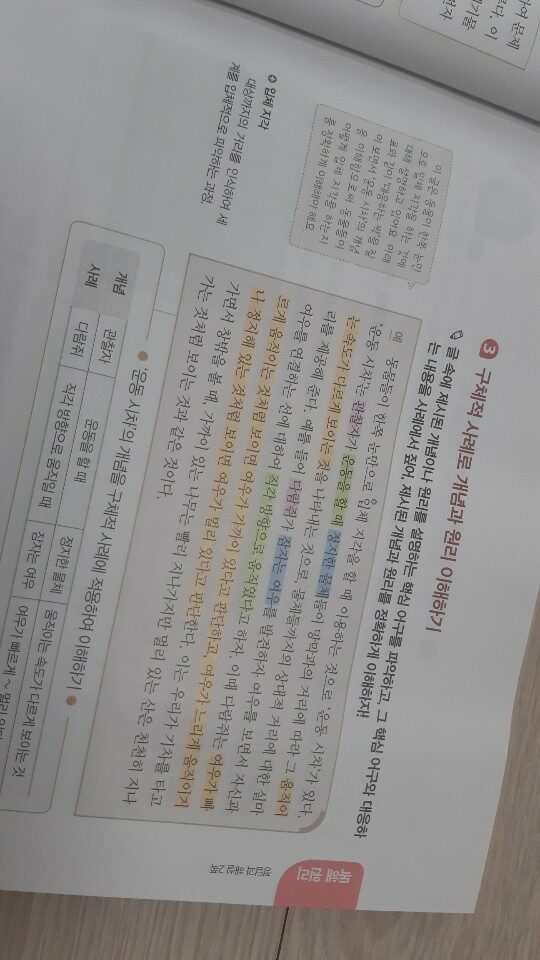 독해 원리
정답과 해설 2쪽
3 구체적 사례로 개념과 원리 이해하기
글 속에 제시된 개념이나 원리를 설명하는 핵심 어구를 파악하고, 그 핵심 어구와 대응하
는 내용을 사례에서 찾아, 제시된 개념과 원리를 정확하게 이해하자!
이 글은 동물이 한쪽 눈만
으로 입체 지각을 하는 것에
대해 설명하고 있어요. 아래
표와 같이 대응하는 짝을 찾
어 보면서 '운동 시차'의 개념
을 이해함으로써 동물들이
어떻게 입체 지각을 하는지
를 정확하게 이해해야 해요.
예 동물들이 한쪽 눈만으로 입체 지각을 할 때 이용하는 것으로 '운동 시차'가 있다.
'운동 시차'는 관찰자가 운동을 할 때 정지한 물체들이 망막과의 거리에 따라 그 움직이
는 속도가 다르게 보이는 것을 나타내는 것으로 물체들까지의 상대적 거리에 대한 실마
리를 제공해 준다. 예를 들어 다람쥐가 잠자는 여우를 발견하자 여우를 보면서 자신과
여우를 연결하는 선에 대하여 직각 방향으로 움직였다고 하자. 이때 다람쥐는 여우가 빠
르게 움직이는 것처럼 보이면 여우가 가까이 있다고 판단하고, 여우가 느리게 움직이거
나 정지해 있는 것처럼 보이면 여우가 멀리 있다고 판단한다. 이는 우리가 기차를 타고
가면서 창밖을 볼 때, 가까이 있는 나무는 빨리 지나가지만 멀리 있는 산은 천천히 지나
가는 것처럼 보이는 것과 같은 것이다.
입체 지각
대상까지의 거리를 인식하여 세
계를 입체적으로 파악하는 과정
'운동 시차'의 개념을 구체적 사례에 적용하여 이해하기
개념 관찰자 운동을 할 때 정지한 물체 움직이는 속도가 다르게 보이는 것
사례 다람쥐 직각 방향으로 움직일 때 잠자는 여우 여우가 빠르게 ~ 멀리 있다